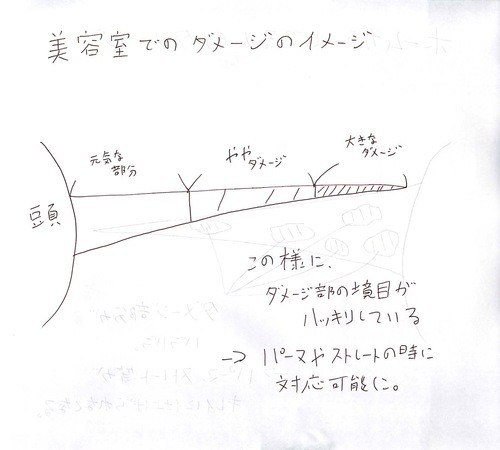 美容室でのダメージのイメージ
元気な
部分
やや
ダメージ
大きな
ダメージ
頭
この様に、
ダメージ部の境目が
ハッキリしている
→ パーマやストレートの時に
対応可能に。